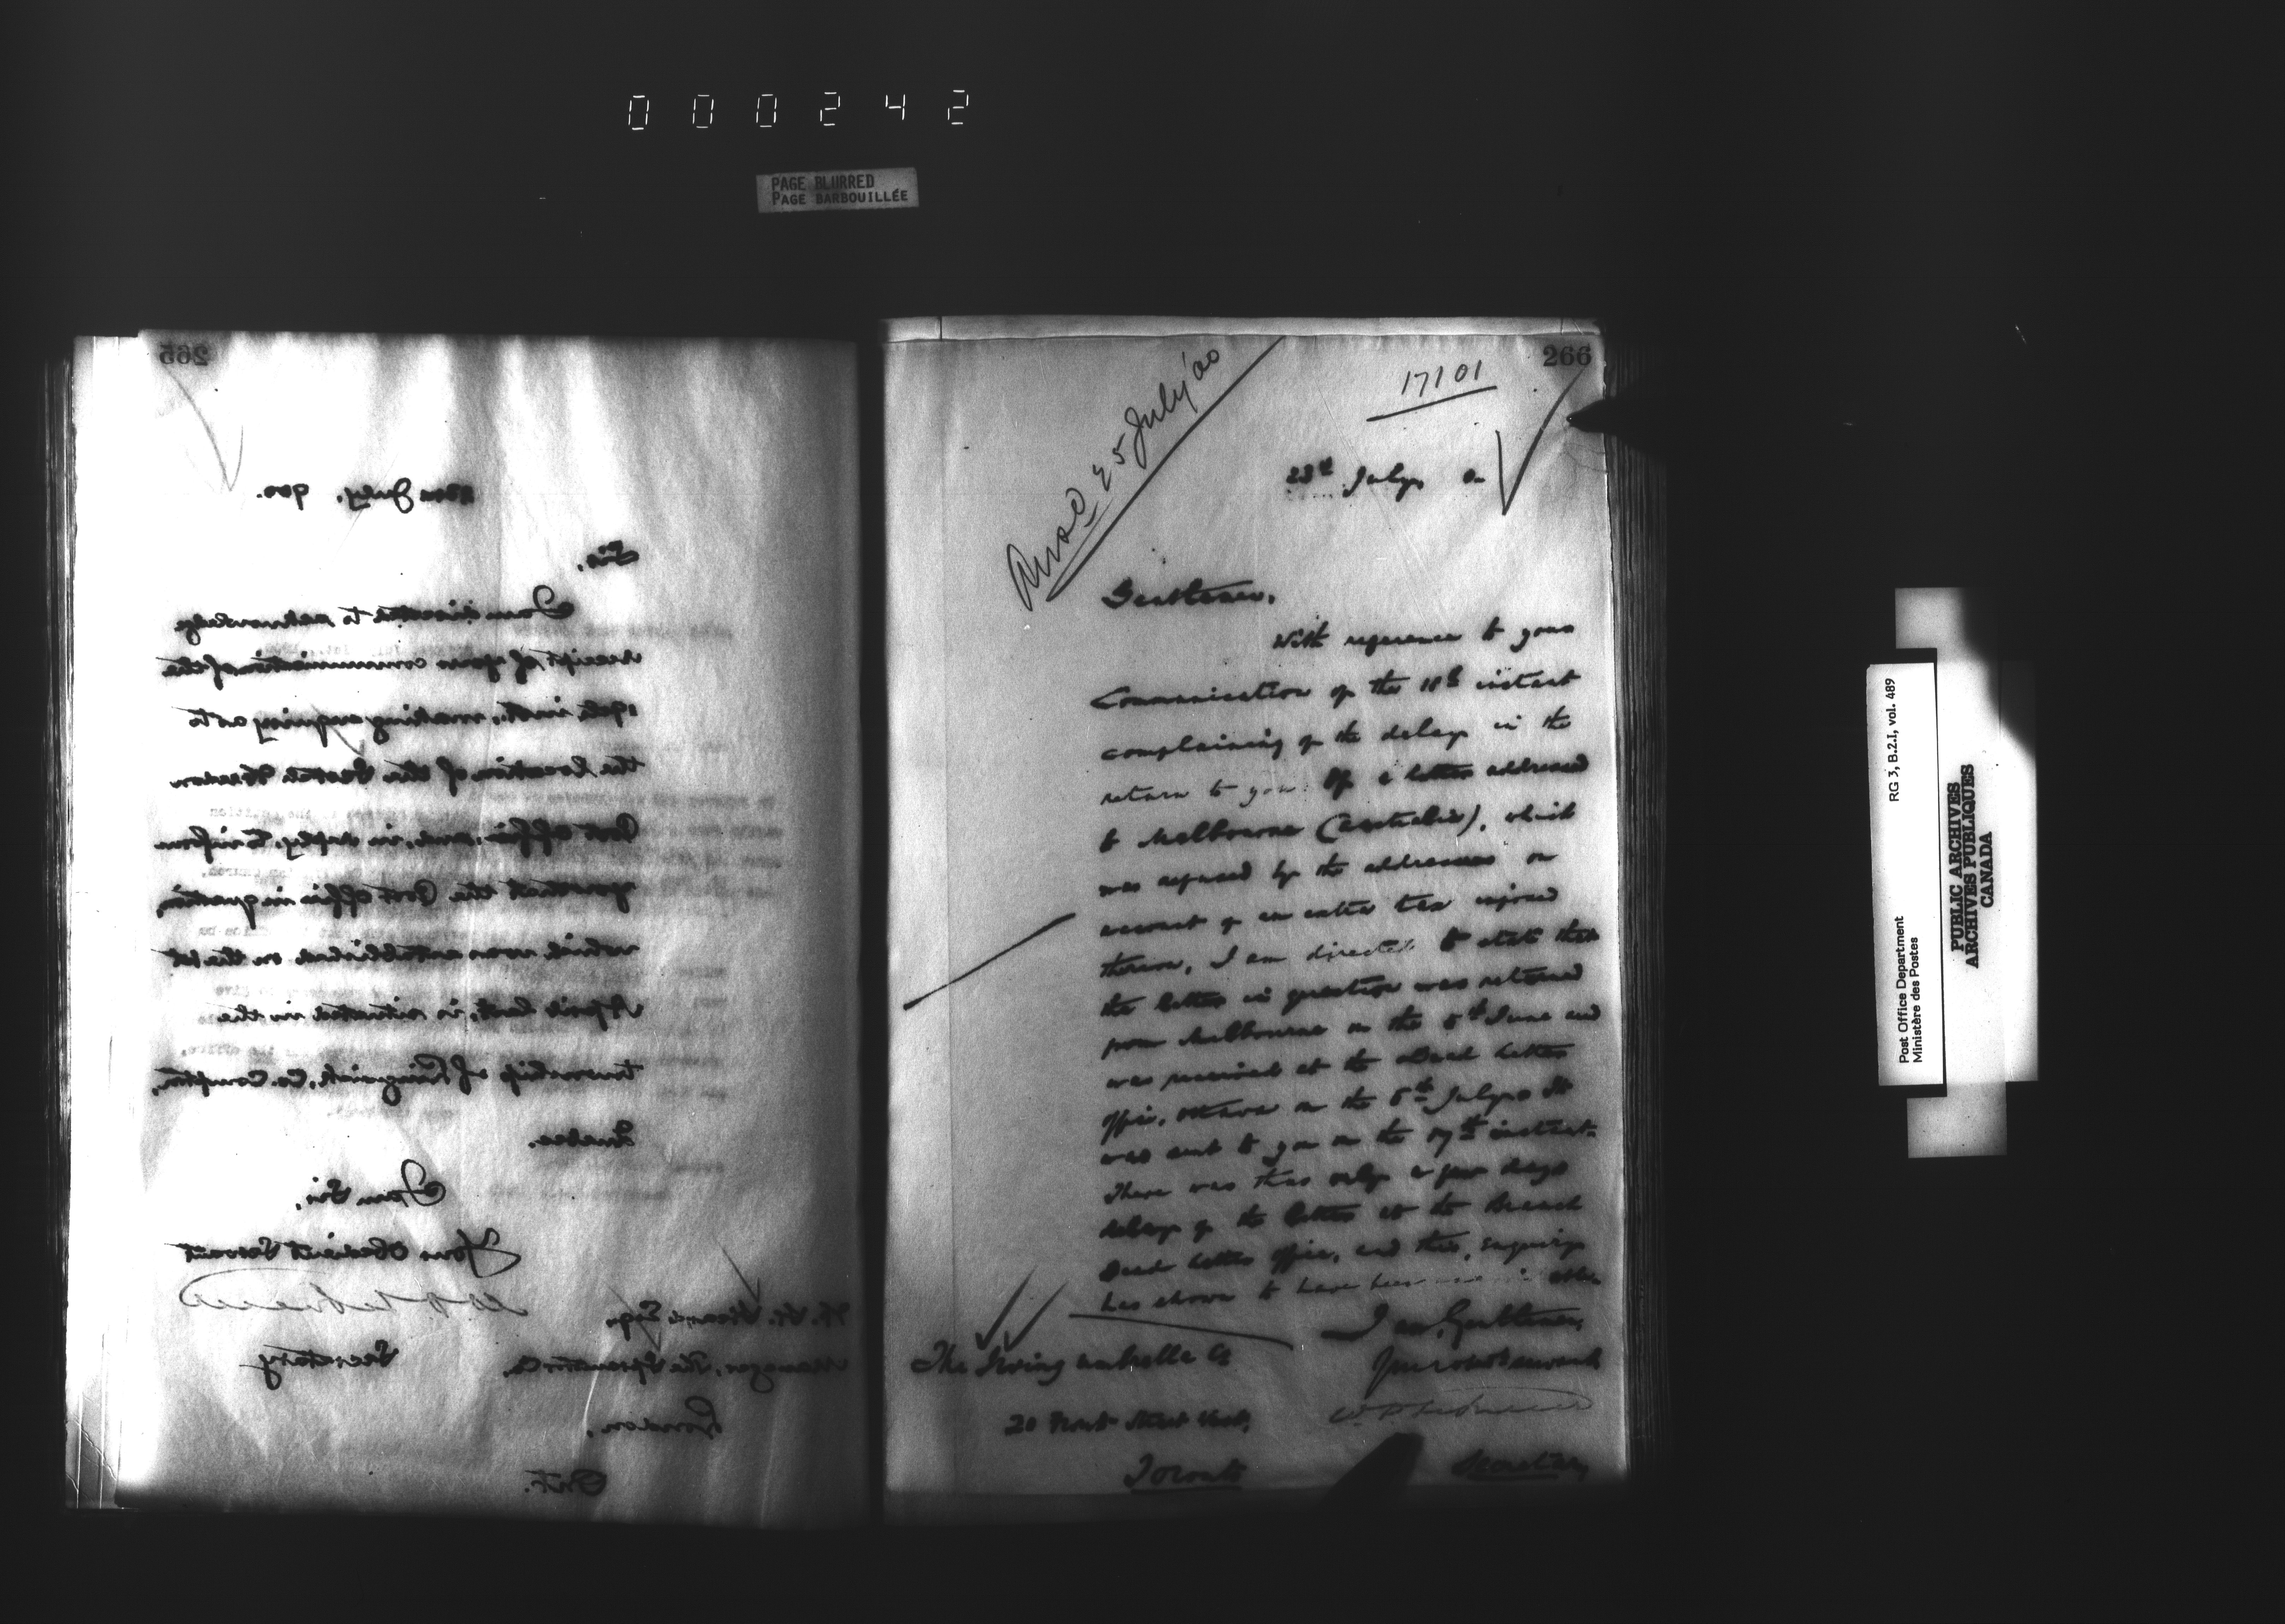 000242
PAGE BLURRED
PAGE BARBOUILLÉE
265
July, 900.
Sir,
I am directed to acknowledge
receipt of your communication of the
inst., making enquiry as to
the location of the
Post office, and, in reply, to inform
you that the Post office in question,
which was established on the 1st
April last, is situated in the
township of Co. Compton,
Quebec.
I am Sir,
Your Obedient Servant
Secretary
Esq.
Manager, The
London,
Ont.
266
17101
25 July '00
23rd July, 00
Gentlemen,
With reference to your
Communication of the 18th instant
complaining of the delay in the
return to you of a letter addressed
to Melbourne (Australia), which
was refused by the addressees on
account of an extra tax imposed
thereon, I am directed to state that
the letter in question was returned
from Melbourne on the 5th June and
was received at the Dead Letter
Office, Ottawa on the 5th July. It
was sent to you on the 17th instant.
There was thus only a few days
delay of the letter at the Branch
Dead Letter Office, and this, enquiry
has shown to have been
I am, Gentlemen,
Your obdt servant
The Irving Umbrella Co
20 Front Street West,
Toronto
Secretary
Post Office Department
Ministère des Postes
RG 3, B.2.I, vol. 489
PUBLIC ARCHIVES
ARCHIVES PUBLIQUES
CANADA